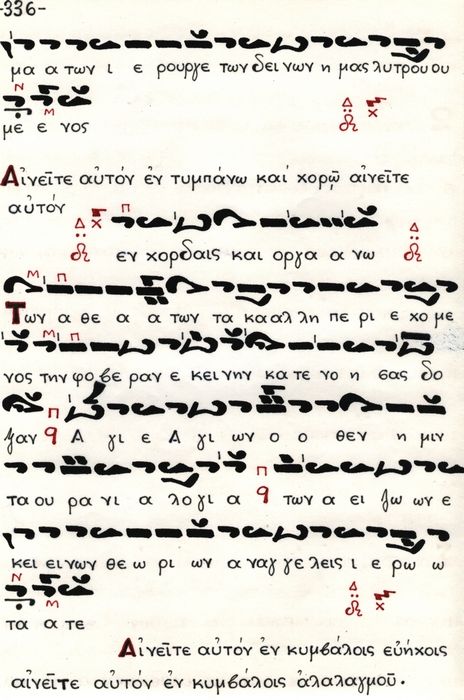 -336-
μα α των ι ε ρουργε των δει νων η μας λυτρου ου
με ε νος
Αἰνεῖτε αὐτόν ἐν τυμπάνω καί χορῷ αἰνεῖτε
αὐτόν
εν χορδαις και οργα α νω
Των α θε α α των τα κα αλ λη πε ρι ε χο με
νος την φο βε ραν ε κει νην κα τε νο η σας δο
ξαν Α γι ε Α γι ων ο ο θεν η μιν
τα ου ρα νι α λο γι α των α ει ζω ων ε
κει ει νων θε ω ρι ων α ναγ γε λεις ι ε ρω ω
τα α τε
Αἰνεῖτε αὐτόν ἐν κυμβάλοις εὐήχοις
αἰνεῖτε αὐτόν ἐν κυμβάλοις ἀλαλαγμοῦ.